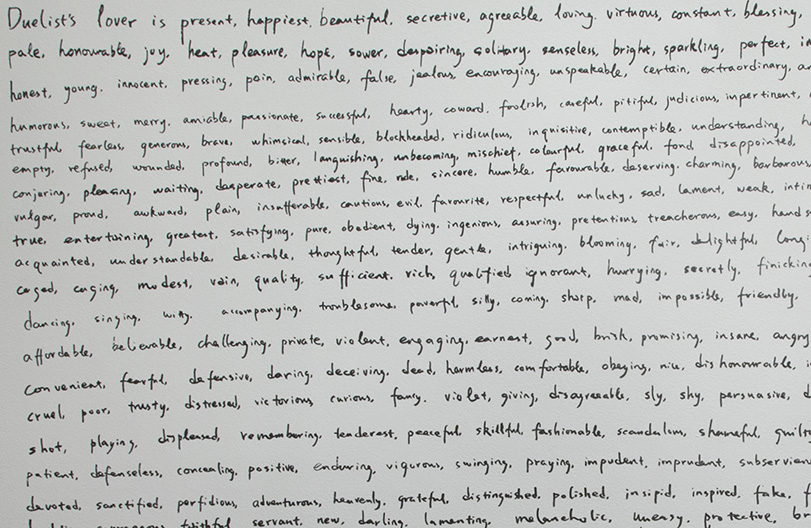 Duelist's lover is present, happiest, beautiful, secretive, agreeable, loving, virtuous, constant, blessing,
pale, honourable, joy, heat, pleasure, hope, sower, despairing, solitary, senseless, bright, sparkling, perfect, in
honest, young, innocent, pressing, pain, admirable, false, jealous, encouraging, unspeakable, certain, extraordinary,
humorous, sweet, merry, amiable, passionate, successful, hearty, coward, foolish, careful, pitiful, judicious, impertinent,
trustful, fearless, generous, brave, whimsical, sensible, blockheaded, ridiculous, inquisitive, contemptible, understanding,
empty, refused, wounded, profound, bitter, languishing, unbecoming, mischief, colourful, graceful, fond, disappointed,
conjuring, pleasing, waiting, desperate, prettiest, fine, rude, sincere, humble, favourable, deserving, charming, barbarous
vulgar, proud, awkward, plain, insufferable, cautious, evil, favourite, respectful, unlucky, sad, lament, weak, inti
true, entertaining, greatest, satisfying, pure, obedient, dying, ingenious, assuring, pretentious, treacherous, easy, hands
acquainted, understandable, desirable, thoughtful, tender, gentle, intriguing, blooming, fair, delightful, longi
caged, caging, modest, vain, quality, sufficient, rich, qualified ignorant, hurrying, secretly, finickin
dancing, singing, witty, accompanying, troublesome, powerful, silly, coming, sharp, mad, impossible, friendly,
affordable, believable, challenging, private, violent, engaging, earnest, good, brisk, promising, insane, angry
convenient, fearful, defensive, daring, deceiving, dead, harmless, comfortable, obeying, nice, dishonourable,
cruel, poor, trusty, distressed, victorious, curious, fancy, violet, giving, disagreeable, sly, shy, persuasive,
shot, playing, displeased, remembering, tenderest, peaceful, skillful, fashionable, scandalous, shameful, guilt
patient, defenseless, concealing, positive, enduring, vigurous, swinging, praying, impudent, imprudent, subservien
devoted, sanctified, perfidious, adventurous, heavenly, grateful, distinguished, polished, insipid, inspired, fake, f
faithful servant, new, darling, lamenting, melancholic, uneasy, protective, br